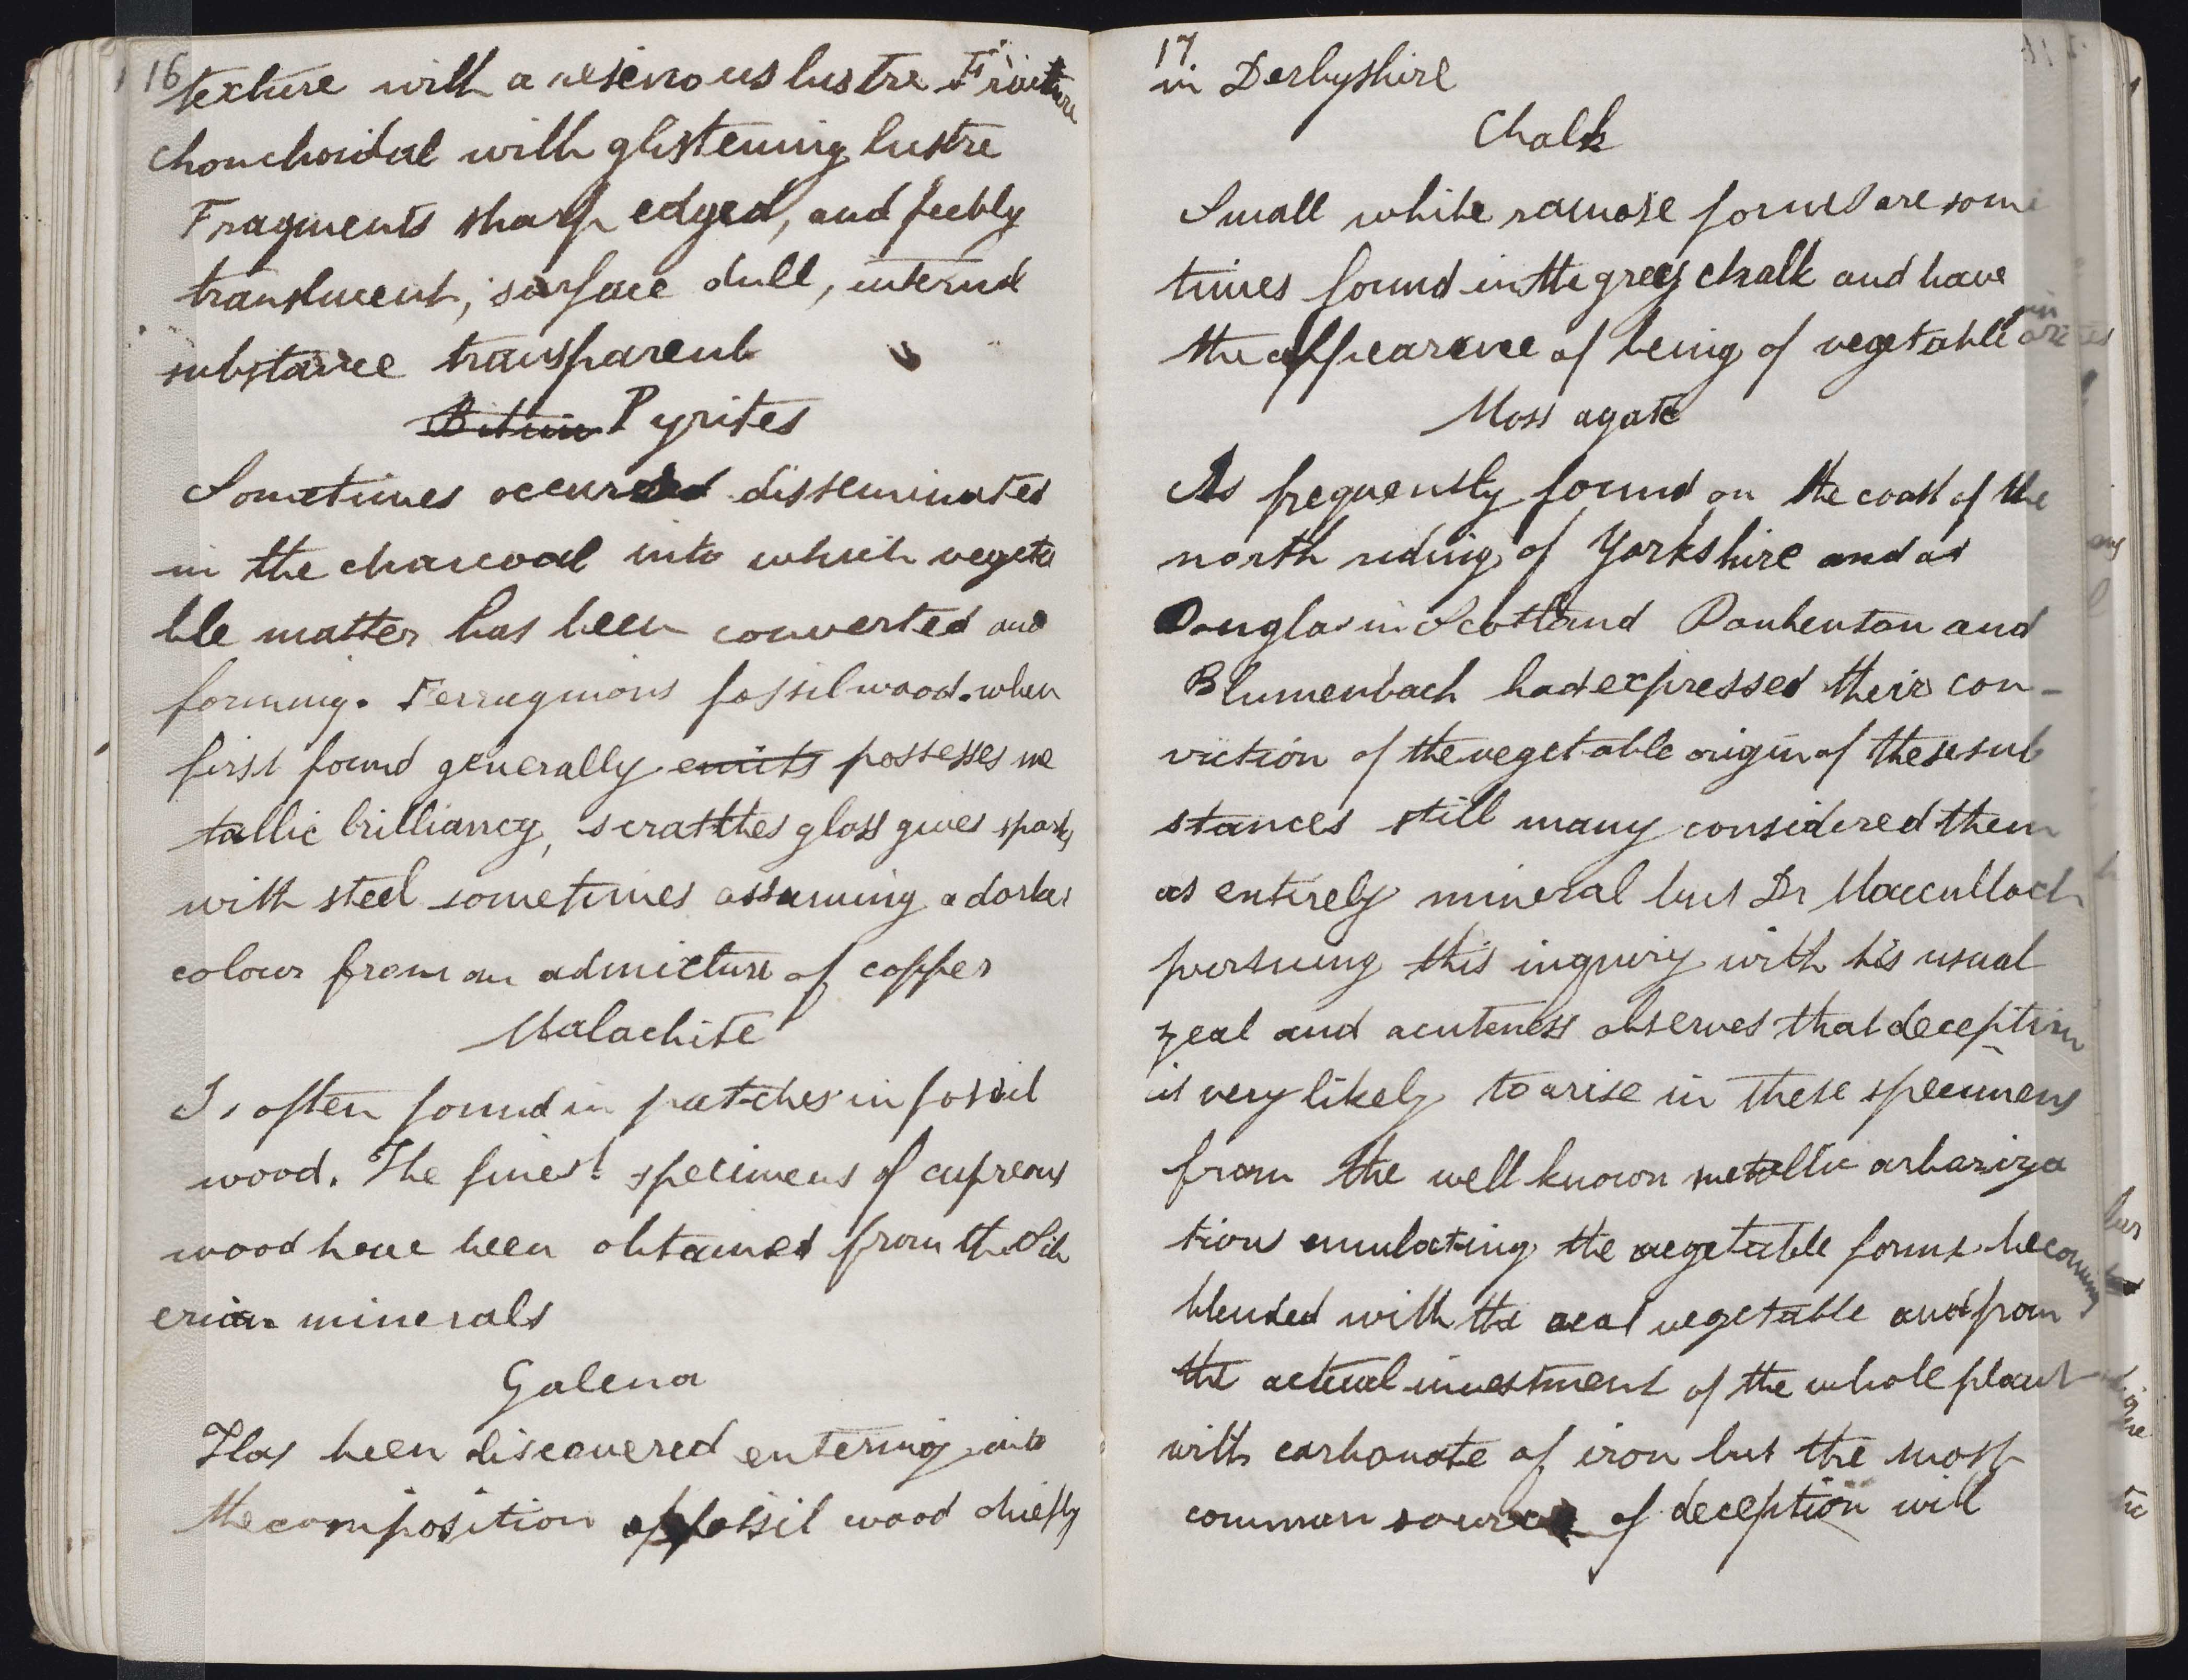 16
texture with a resinous lustre Fracture
chonchoidal with glistening lustre
Fragments sharp edged, and feebly
translucent, surface dull, internal
substance transparent
Bitum Pyrites
Sometimes occurred disseminated
in the charcoal into which vegeta
ble matter has been converted and
forming. Ferruginous fossil wood. when
first found generally emits possesses me
tallic brilliancy, scratthes glass gives sparks
with steel sometimes assuming a darker
colour from an admixture of copper
Malachite
Is often found in patches in fossil
wood. The finest specimens of cupreous
wood have been obtained from the Sib
erian minerals
Galena
Has been discovered entering into
the composition of fossil wood chiefly
17
in Derbyshire
Chalk
Small white ramose forms are some
times found in the grey chalk and have
the appearance of being of vegetable
Moss agate
As frequently found on the coast of the
north riding of Yorkshire and at
Douglas in Scotland Daubenton and
Blumenbach had expressed their con-
viction of the vegetable origin of these sub
stances still many considered them
as entirely mineral but Dr Macculloch
pursuing this inquiry with his usual
zeal and acuteness observes that deception
is very likely to arise in these specimens
from the well known metallic arboriza
tion emulating the vegetable forms becoming
blended with the real vegetable and from
the actual investment of the whole plant
with carbonate of iron but the most
common source of deception will